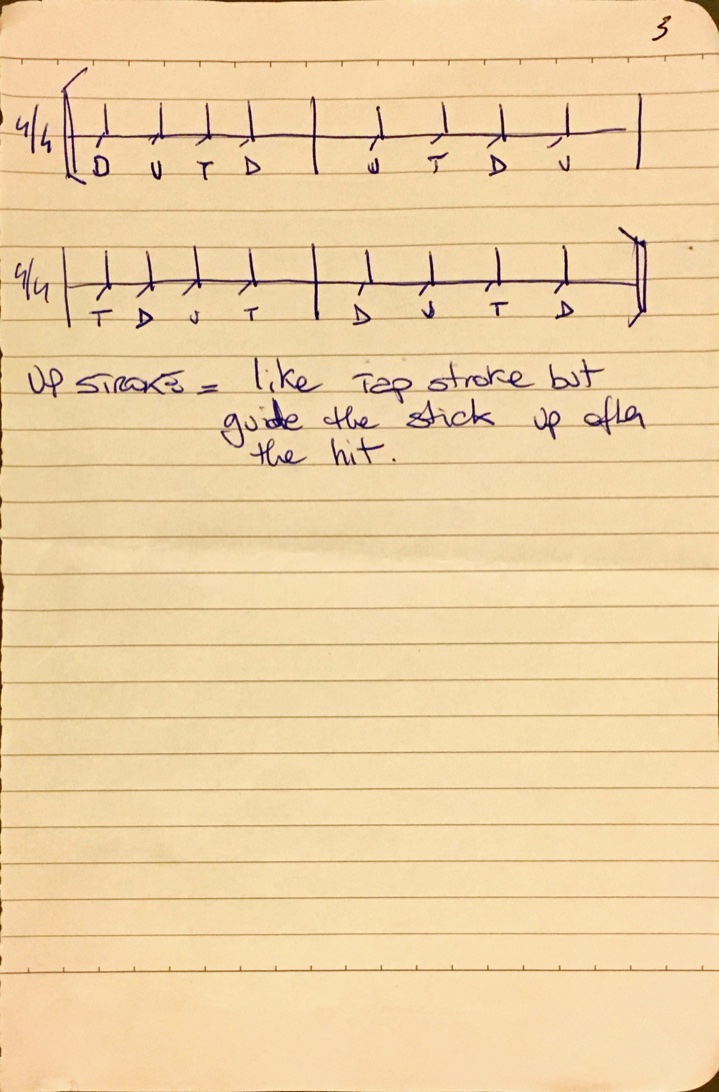 3
4/4
D U T D U T D U
4/4
T D U T D U T D
UP STROKE = like Tap stroke but
guide the stick up after
the hit.